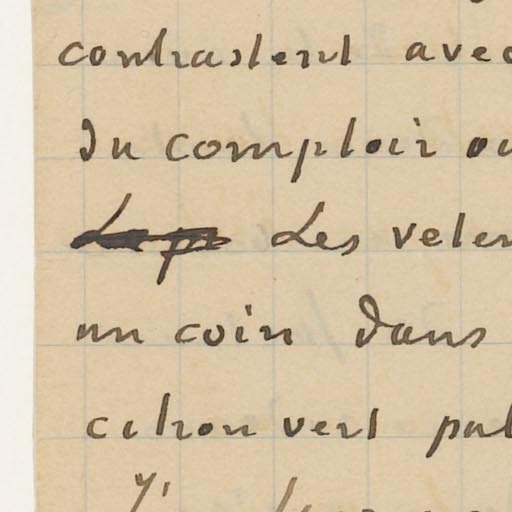 contrastent avec
du comptoir ou
Les veten
un coin dans
citron vert pal
J'